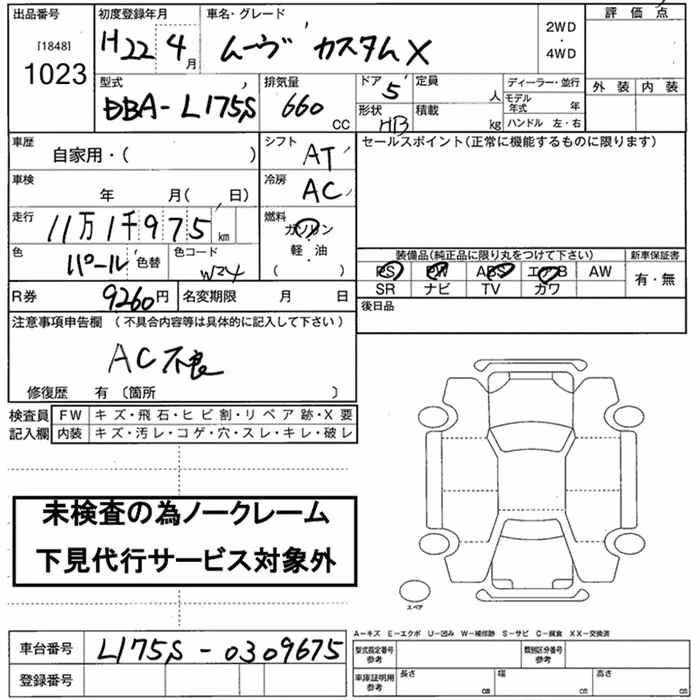 出品番号 初度登録年月 車名・グレード 評価点
[1848]
1023 H22 4月 ムーヴ カスタムX 2WD・4WD
型式 排気量 ドア 定員 ディーラー・並行 外装 内装
DBA-L175S 660 CC 5 人 モデル年式 年
形状 HB 積載 kg ハンドル 左・右
車歴 シフト セールスポイント(正常に機能するものに限ります)
自家用・( ) AT
車検 冷房
年 月( 日) AC
走行 燃料
11万1千975km ガソリン・軽油
色 色替 色コード ( ) 装備品(純正品に限り丸をつけて下さい) 新車保証書
パール W24 PS PW ABS エアB AW 有・無
SR ナビ TV カワ
R券 9260円 名変期限 月 日 後日品
注意事項申告欄 (不具合内容等は具体的に記入して下さい)
AC不良
修復歴 有 〔箇所 〕
検査員 FW キズ・飛石・ヒビ割・リペア跡・X要
記入欄 内装 キズ・汚レ・コゲ・穴・スレ・キレ・破レ
未検査の為ノークレーム
下見代行サービス対象外
スペア
A-キズ E-エクボ U-凹み W-補修跡 S-サビ C-腐食 XX-交換済
車台番号 L175S-0309675 型式指定番号 参考 類別区分番号 参考
登録番号 車庫証明用 参考 長さ cm 幅 cm 高さ cm